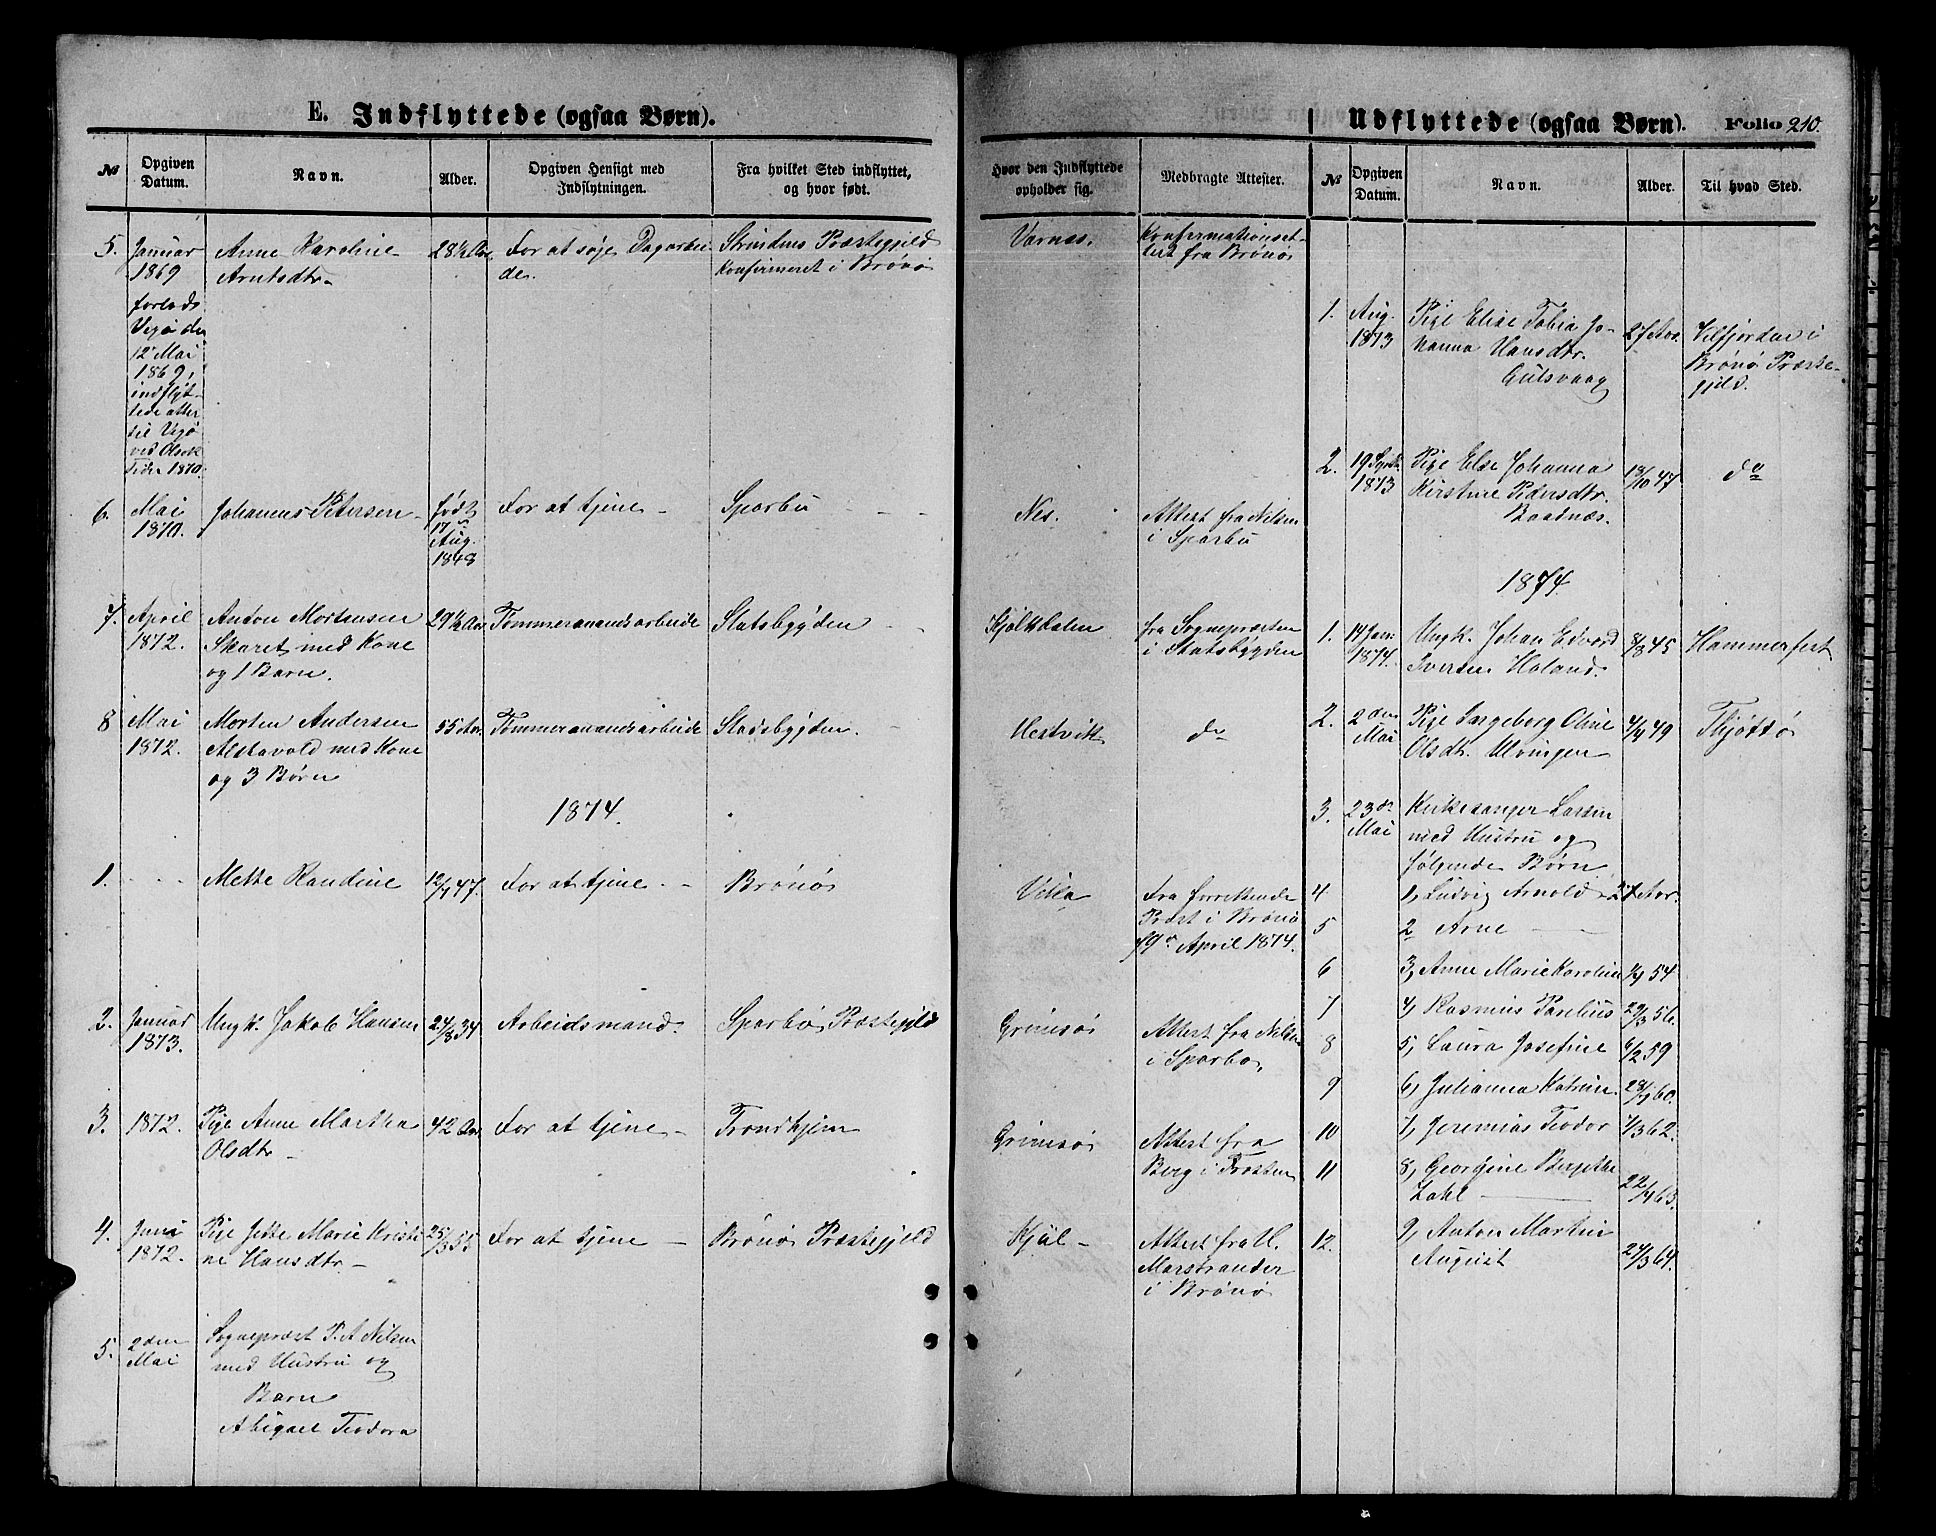 E. Indflyttede (ogsaa Børn).
№
Opgiven Datum.
Navn.
Alder.
Opgiven Hensigt med Indflytningen.
Fra hvilket Sted indflyttet, og hvor født.
Hvor den Indflyttede opholder sig.
Medbragte Attester.
5. Januar 1869 Anne Karoline Arntsdtr. 28½ Aar For at søge Dagarbeide. Strindens Præstegjeld konfirmeret i Brønø Vornes. Konfirmationsattest fra Brønø
forlods
Vegø den
12 Mai
1869,
indflyt-
tede atter
til Vegø
ved Olsok
Tider 1870.
6. Mai 1870. Johannes Petersen født 17 Aug. 1848 For at tjene Sparbu Nes. Attest fra Nilsen i Sparbu
7. April 1872. Anton Mortensen Skaret med Kone og 1 Barn. 29½ Aar Tømmermandsarbeide Statsbygden Kjølkdalen fra Sognepræsten i Statsbygden
8 Mai 1872. Morten Andersen Alstavold med Kone og 3 Børn 55 Aar Tømmermandsarbeide Stadsbygden. Hestvitt do
1874.
1. Mette Randine 12/1 47. For at tjene Brønø Vika Fra forrettende Præst i Brønø 19de April 1874.
2. Januar 1873. Ungk. Jakob Hansen 24/8 34 Arbeidsmand. Sparbo Præstegjeld Grimsø Attest fra Nilsen i Sparbo,
3. 1872. Pige Anne Martha Olsdtr 42 Aar For at tjene Trondhjem Grimsø Attest fra Berg i Frosten
4. Juni 1872. Pige Jette Marie Kristine Hansdtr 25/3 55 For at tjene Brønø Præstegjeld Kjul Attest fra H. Marstrander i Brønø
5. 2den Mai Sognepræst P. A Nilsen
med Hustru og
Barn
Abigael Teodora
Udflyttede (ogsaa Børn). Folio 210.
№
Opgiven Datum.
Navn.
Alder.
Til hvad Sted.
1. Aug. 1873 Pige Elise Tobia Johanna Hansdtr. Gulsvaag 27 Aar. Vilfjorden i Brønø Præstegjeld.
2. 19 Septb. 1873 Pige Else Johanna Kirstine Pedersdtr. Baadnæs. 18/10 47 do
1874.
1. 14 Jan. 1874. Ungk. Johan Edvard Iversen Haland. 8/8 45 Hammerfest
2. 2den Mai Pige Ingeborg Oline Olsdtr. Ulvingen 4/4 49 Thjøttø
3. 23de Mai Kirkesanger Larsen
med Hustru og
følgende Børn
4 1, Ludvig Arnold 21 Aar.
5 2 Arne
6 3, Anne Marie Karoline 54
7 4, Rasmus Parelius 29/3 56.
8 5, Laura Josefine 6/2 59
9 6, Julianna Katrine 28/1 60.
10 7, Jeremias Teodor 1/3 62.
11 8, Georgine Bergitte Zahl 22/4 63.
12. 9, Anton Martin August 24/3 64.